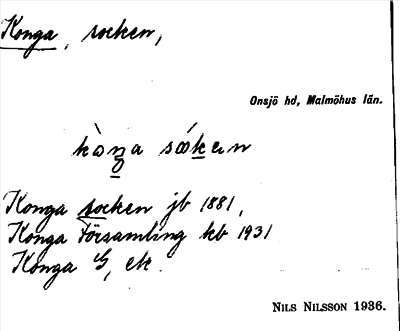 Konga, socken,
Onsjö hd, Malmöhus län.
Konga socken jb 1881,
Konga Församling kb 1931
Konga G, ek.
NILS NILSSON 1936.